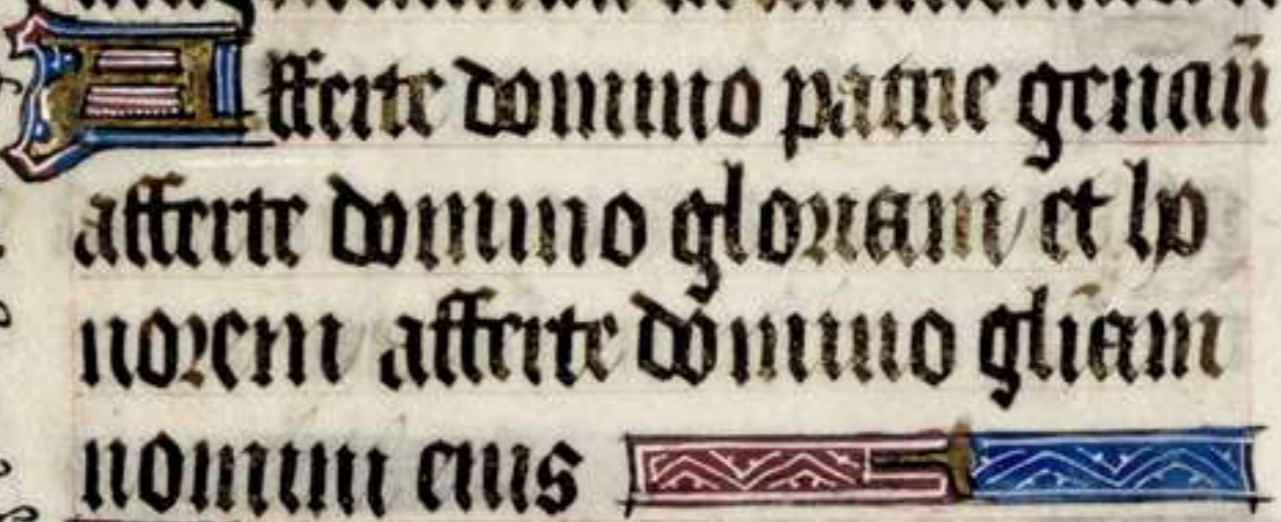 Afferte domino patrie genciū
afferte domino gloriam et ho
norem afferte domino gl̄iam
nomini eius